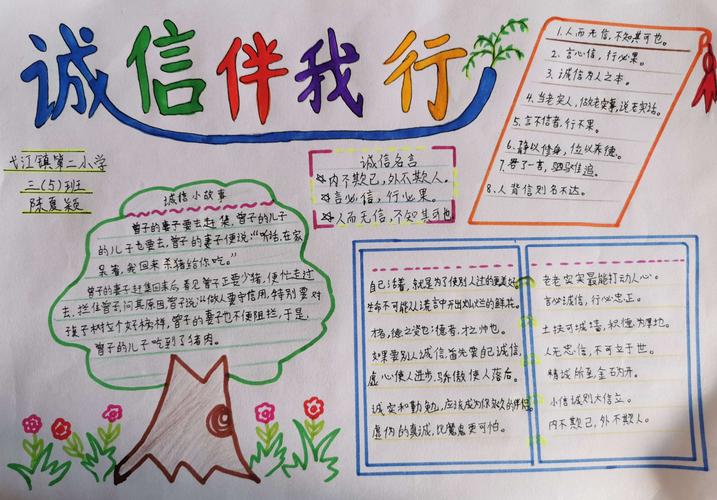 诚信伴我行
弋江镇第二小学
三(5)班
陈夏颖
诚信小故事
曾子的妻子要去赶集,曾子的儿子
的儿子也要去,曾子的妻子便说:"听话,在家
呆着,我回来杀猪给你吃。"
曾子的妻子赶集回来后,看见曾子正要少猪,便忙走过
去,拦住曾子,问其原因,曾子说:"做人要守信用,特别要对
孩子树立个好榜样,曾子的妻子也不便阻拦,于是,
曾子的儿子吃到了猪肉。
诚信名言
内不欺己,外不欺人。
言必信,行必果。
人而无信,不知其可也。
1.人而无信,不知其可也。
2.言必信,行必果。
3.诚信为人之本。
4.当老实人,做老实事,说老实话。
5.言不信者,行不果。
6.静以修身,俭以养德。
7.君子一言,驷马难追。
8.人背信则名不达。
自己活着,就是为了使别人过的更美好。
生命不可能从谎言中开出灿烂的鲜花。
才者,德之资也;德者,才之帅也。
如果要别人诚信,首先要自己诚信,
虚心使人进步,骄傲使人落后。
诚实和勤勉,应该成为你永久的伴侣。
虚伪的真诚,比魔鬼更可怕。
老老实实最能打动人心。
言必诚信,行必忠正。
土扶可城墙,积德为厚地。
人无忠信,不可立于世。
精诚所至金石为开。
小信诚则大信立。
内不欺己,外不欺人。